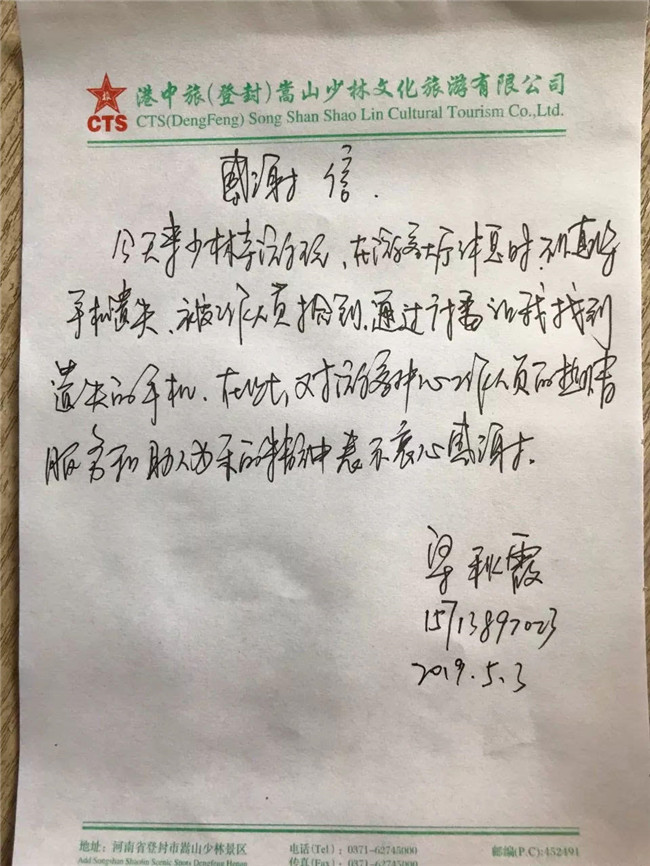 港中旅(登封)嵩山少林文化旅游有限公司
CTS
CTS(DengFeng) Song Shan Shao Lin Cultural Tourism Co.,Ltd.
感谢信.
今天来少林寺游玩、在游客大厅休息时、不慎将
手机遗失、被工作人员拾到.通过广播让我找到
遗失的手机.在此,对游客中心工作人员的热情
服务和助人为乐的精神表示衷心感谢。
梁秋霞
15713897023
2019.5.3
地址:河南省登封市嵩山少林景区
电话(Tel):0371-62745000
邮编(P.C):452491
Add:Songshan Shaolin Scenic Spots Dengfeng Henan
传真(Fax):0371-62745000